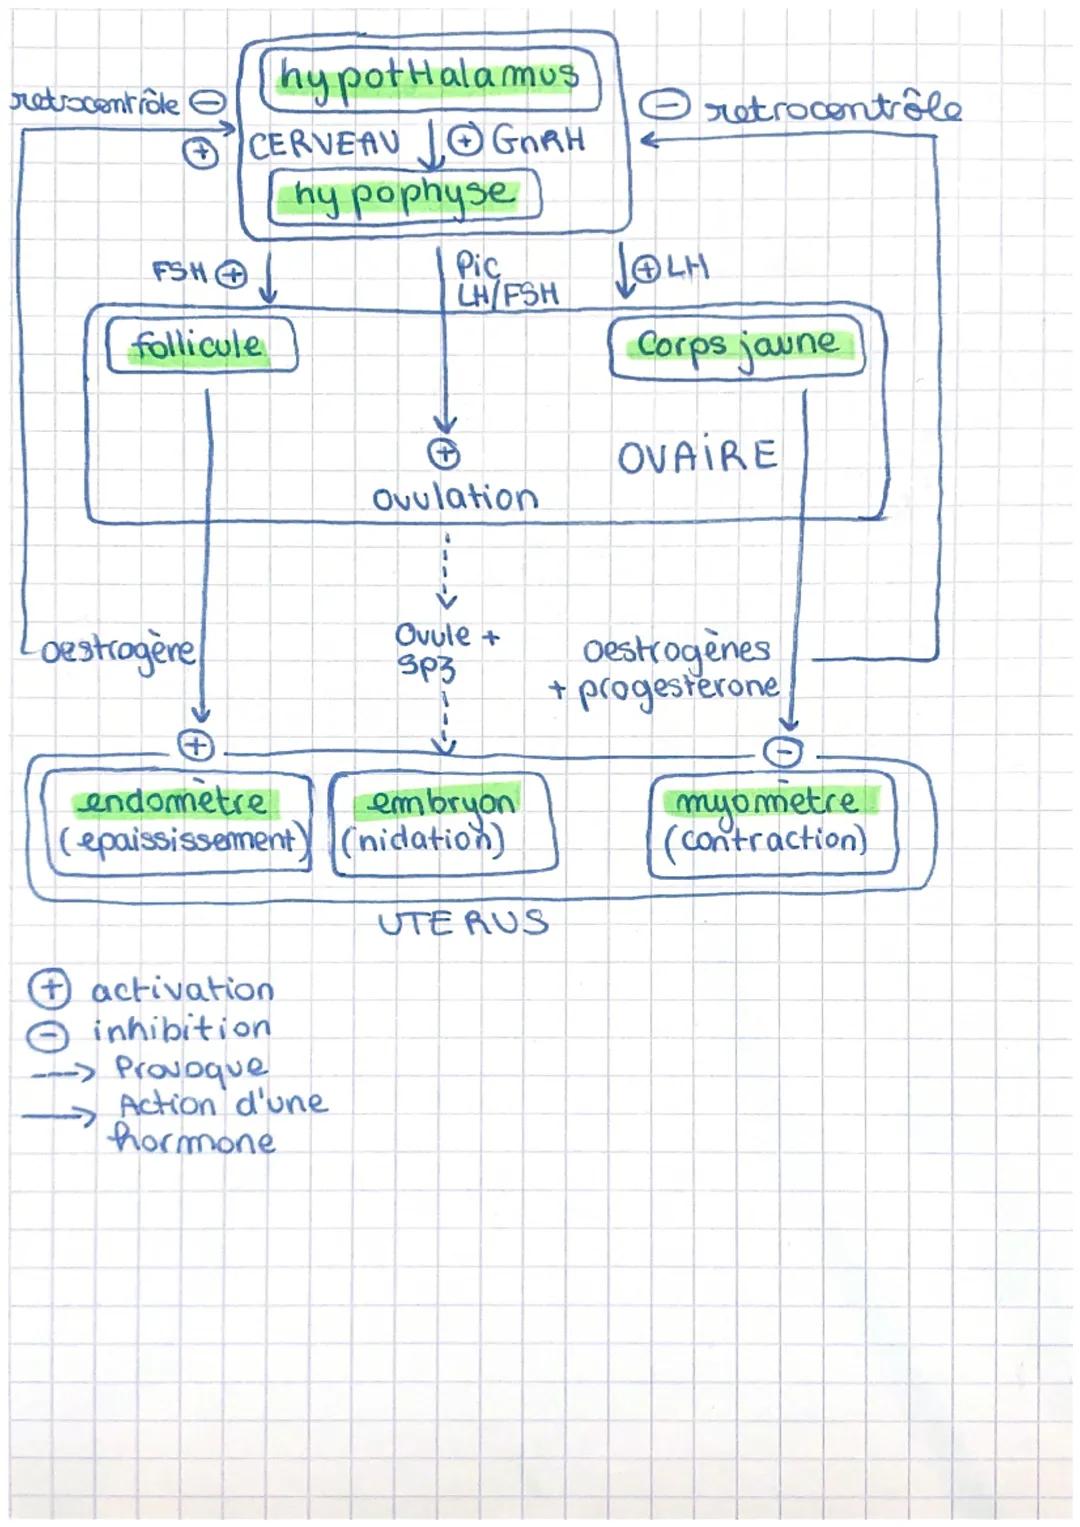 hypotHalamus
retrocontrôle ⊖
⊖ retrocontrôle
⊕
CERVEAU
⊕ GnRH
hypophyse
FSH ⊕
Pic
LH/FSH
⊕ LH
follicule
Corps jaune
⊕
ovulation
OVAiRE
oestrogère
Ovule +
SPZ
oestrogènes
+ progesterone
⊕
⊖
endomètre
(epaississement)
embryon
(nidation)
myomètre
(contraction)
UTERUS
⊕ activation
⊖ inhibition
---> Provoque
→ Action d'une
hormone